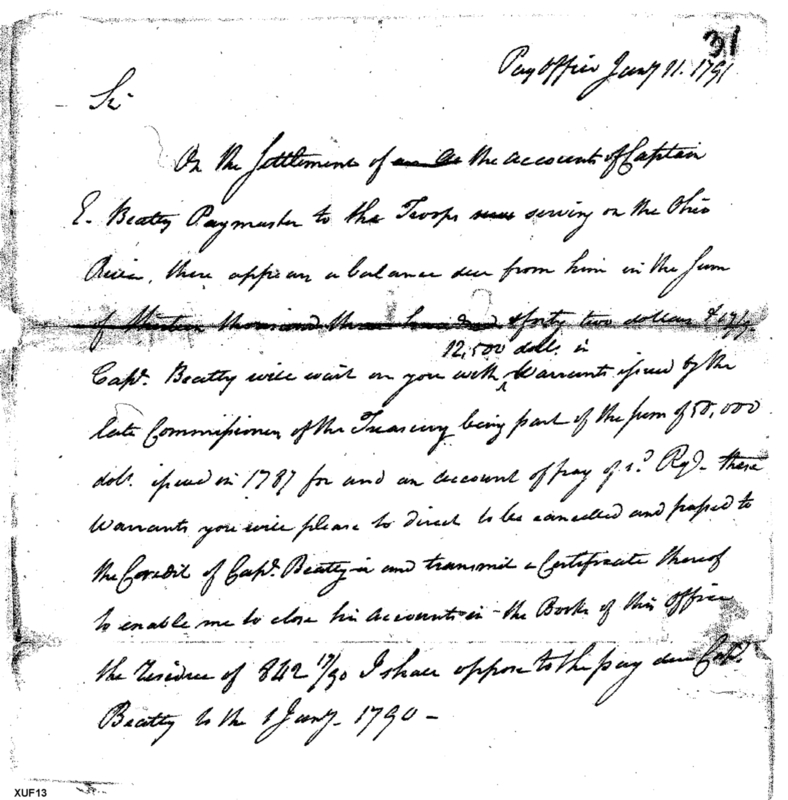 31
Pay Office Jany 11. 1791
Sir
On the Settlement of the accounts of Captain
E. Beatty Paymaster to the Troops serving on the Ohio
River, there appears a balance due from him in the Sum
of thirteen thousand three hundred & forty two dollars & 17/90
12,500 dolls. in
Capt. Beatty will wait on you with Warrants issued by the
late Commissioners of the Treasury being part of the sum of 50,000
dolls. issued in 1787 for and on account of pay of sd. Regt. these
Warrants you will please to direct to be cancelled and passed to
the Credit of Capt. Beatty and transmit a Certificate thereof
to enable me to close his accounts in the Books of this Office
the residue of 842 17/90 I shall oppose to the pay due Capt.
Beatty to the 1 Jany. 1790 -
XUF13